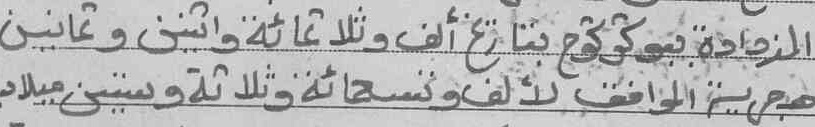 المزدادة ببوكوكوح بتاريخ ألف وثلاثمائة واثنين وثمانين
هجرية الموافق لألف وتسعمائة وثلاثة وستين ميلاد